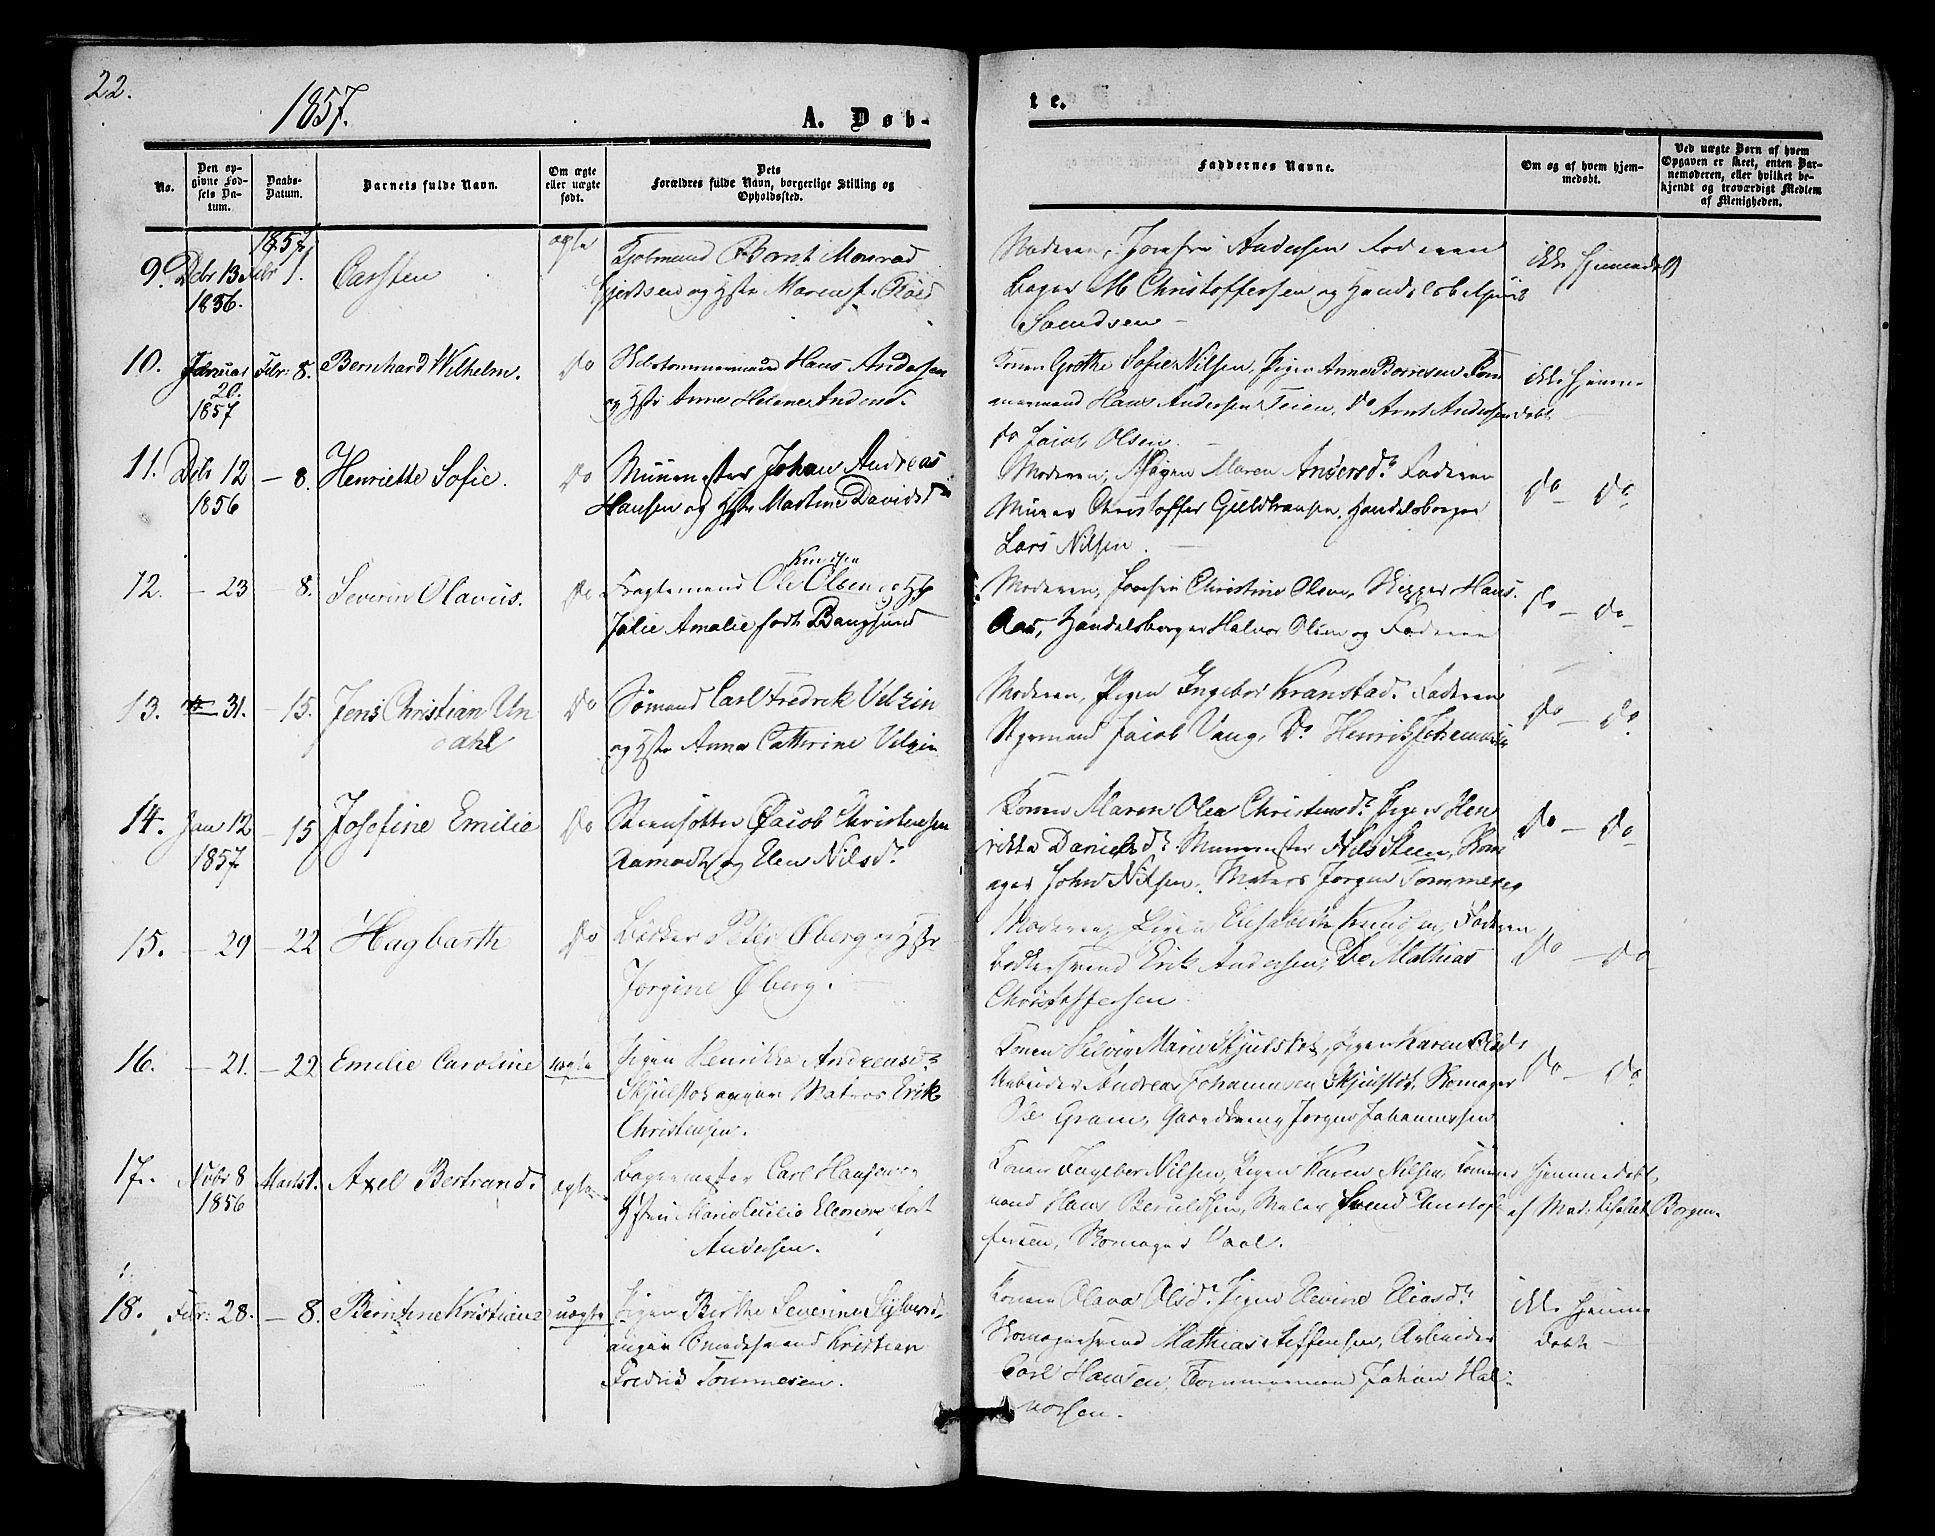 22.
1857.
A. Døb-
te.
No.
Den op-
givne Fød-
sels Da-
tum.
Daabs-
Datum.
Barnets fulde Navn.
Om ægte
eller uægte
født.
Dets
Forældres fulde Navn, borgerlige Stilling og
Opholdssted.
Faddernes Navne.
Om og af hvem hjem-
medøbt.
Ved uægte Børn af hvem
Opgaven er skeet, enten Bar-
nemoderen, eller hvilket be-
kjendt og troværdigt Medlem
af Menigheden.
1857
9. Debr 13 Febr 1. Carsten ægte Bernt Monrad
1856. og Hstr Maren f. Røed
Moderen, Jomfru Andersen Faderen
Bager M Christoffersen og Handelsb
ikke hjemmedøbt
10. Januar Febr: 8. Bernhard Wilhelm. Do Tømmermand Hans Andersen
20. og Hstr Anne Helene Andersd.
1857
Konen Grethe Sofie Nilsen, Pigen Anne Berresen Tøm
mermand Hans Andersen Teien, Do Arnt Andersen
Do Jacob Olsen.
ikke hjemme
døbt.
11. Debr 12 — 8. Henriette Sofie. Do Muurmester Johan Andreas
1856 Hansen og Hstr Martine Davidsd
Moderen, Pigen Maren Andersdr Faderen
Murer Christoffer Guldbransen, Handelsborger
Lars Nilsen.
Do — Do
12. — 23 — 8. Severin Olavus. Do Fragtemand Ole Olsen og H
Knudsen
Julie Amalie født Bangsund
Moderen, Jomfru Christine Olsen, Skipper Hans
Aas, Handelsborger Halvor Olsen og Faderen
Do — Do
13. 31. — 15. Jens Christian Un Do Sømand Carl Fredrik Velzin
dahl og Hstr Anne Cathrine Velzin
Moderen, Pigen Ingebor Kranstad. Faderen
Styrmand Jacob Vang, Do Henrik
Do — Do
14. Jan 12 — 15 Josefine Emilie Do Jacob Christensen
1857 Aamodt og Elen Nilsd.
Konen Maren Olea Christensdr Pigen Hen
rikke Danielsdr Murmester Nils Steen, Skom
ager John Nilsen, Matros Jørgen Tommeses
Do — Do
15. — 29 — 22 Hagbarth Do Bødker Peter Øberg og Hstr
Jørgine Øberg.
Moderen, Pigen Elisabeth Knudsen, Faderen
Bødkersvend Erik Andersen, Do Mathias
Christoffersen
Do — Do
16. — 21. — 22 Emilie Caroline uægte Pigen Henrikke Andreasdr
Skjulstok angiver Matros Erik
Christensen.
Konen Helvig Marie Skjulstok, Pigen Karen
Arbeider Andreas Johannesen Skjulstok, Skomager
Gram, Jørgen Johannessen
Do — Do
17. Nobr 8 Marts 1. Axel Bertrand. ægte Bagermester Carl Hansen og
1856 Hstru Marie Cecilie Elenore født
Andersen.
Konen Ingebor Nilsen, Pigen Karen Nilsen, Tømmer
mand Hans Beruldsen, Maler Svend Christof
fersen, Skomager Vaal.
hjemmedøbt,
af Mad. Elisabet Borgen
18. Febr: 28. — 8. Berntine Kristiane uægte Pigen Birthe Severine Sylversd
angiver Smedesvend Kristian
Fredrik Tommesen.
Konen Olava Olsdr Pigen Elevine Eliasdr
Skomagersvend Mathias Steffensen, Arbeider
Carl Hansen, Tømmermand Johan Hal-
vorsen.
ikke hjemme
døbt